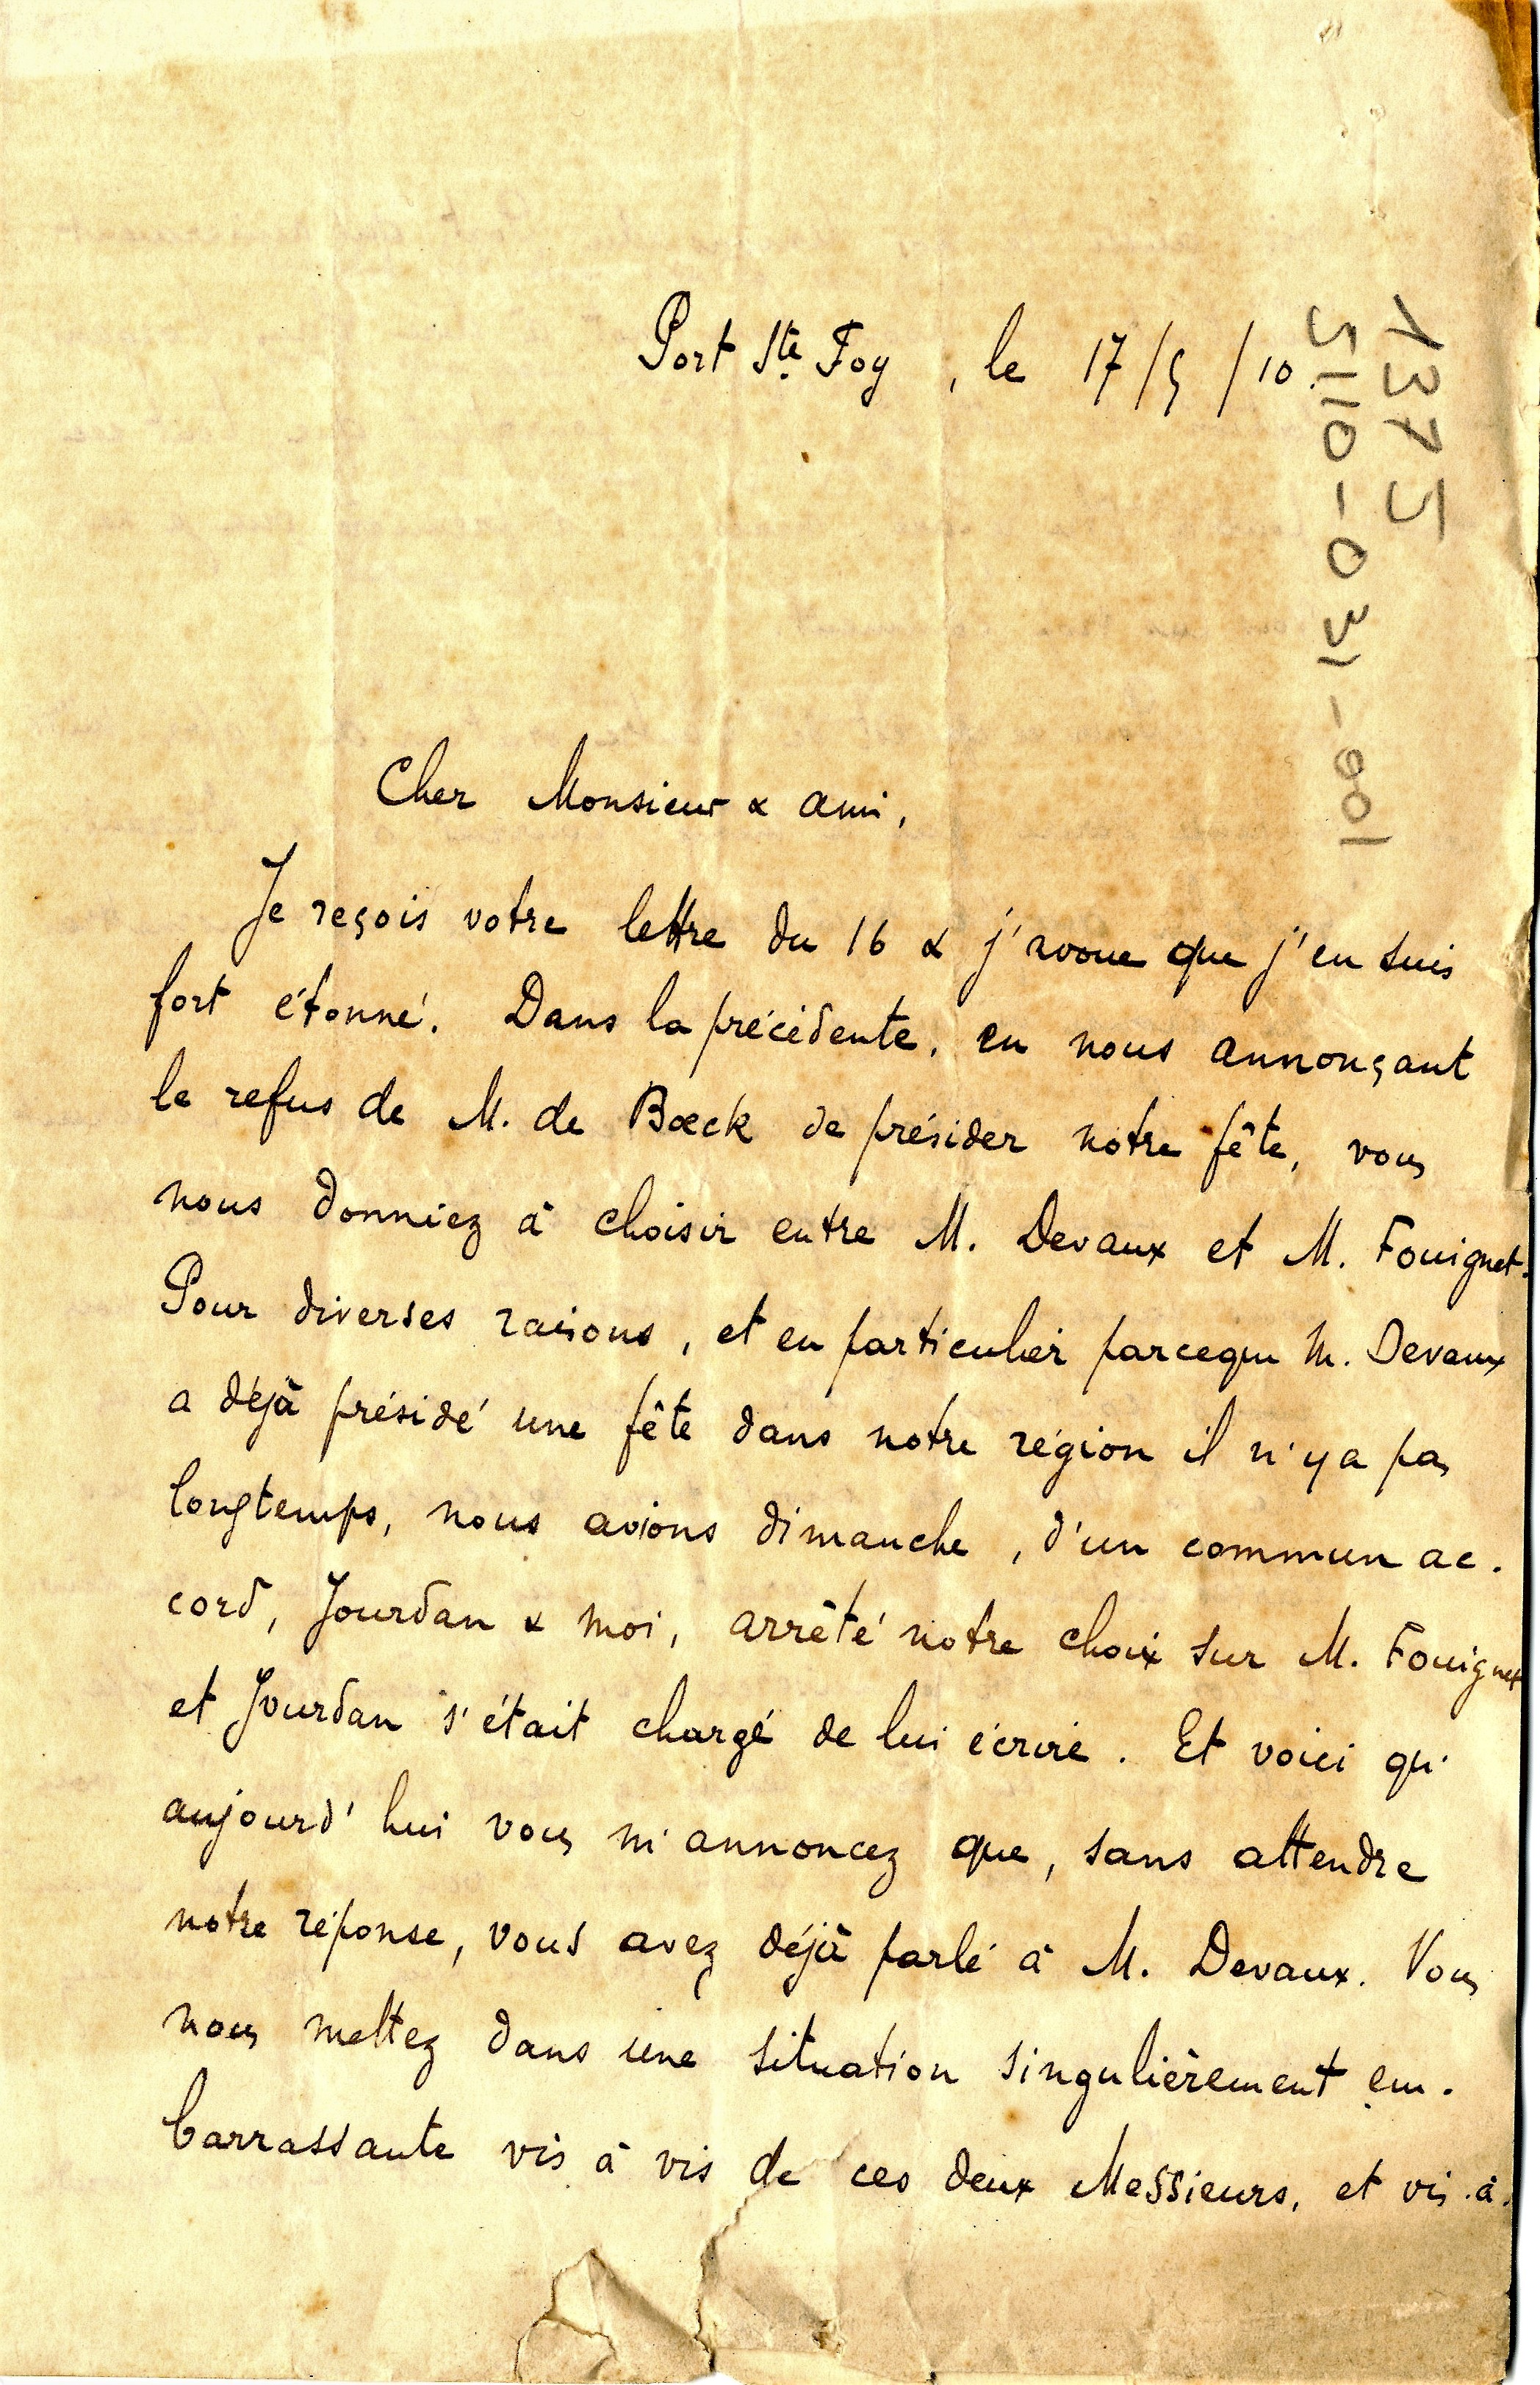 Port Ste Foy, le 17/5/10.
1375
5110-031-001
Cher Monsieur & ami,
Je reçois votre lettre du 16 & j'avoue que j'en suis
fort étonné. Dans la précédente, en nous annonçant
le refus de M. de Bœck de présider notre fête, vous
nous donniez à choisir entre M. Devaux et M. Fouignet.
Pour diverses raisons, et en particulier parceque M. Devaux
a déjà présidé une fête dans notre région il n'y a pas
longtemps, nous avions dimanche, d'un commun ac-
cord, Jourdan & moi, arrêté notre choix sur M. Fouignet
et Jourdan s'était chargé de lui écrire. Et voici qu'
aujourd'hui vous m'annoncez que, sans attendre
notre réponse, vous avez déjà parlé à M. Devaux. Vous
nous mettez dans une situation singulièrement em-
barrassante vis à vis de ces deux Messieurs, et vis-à-